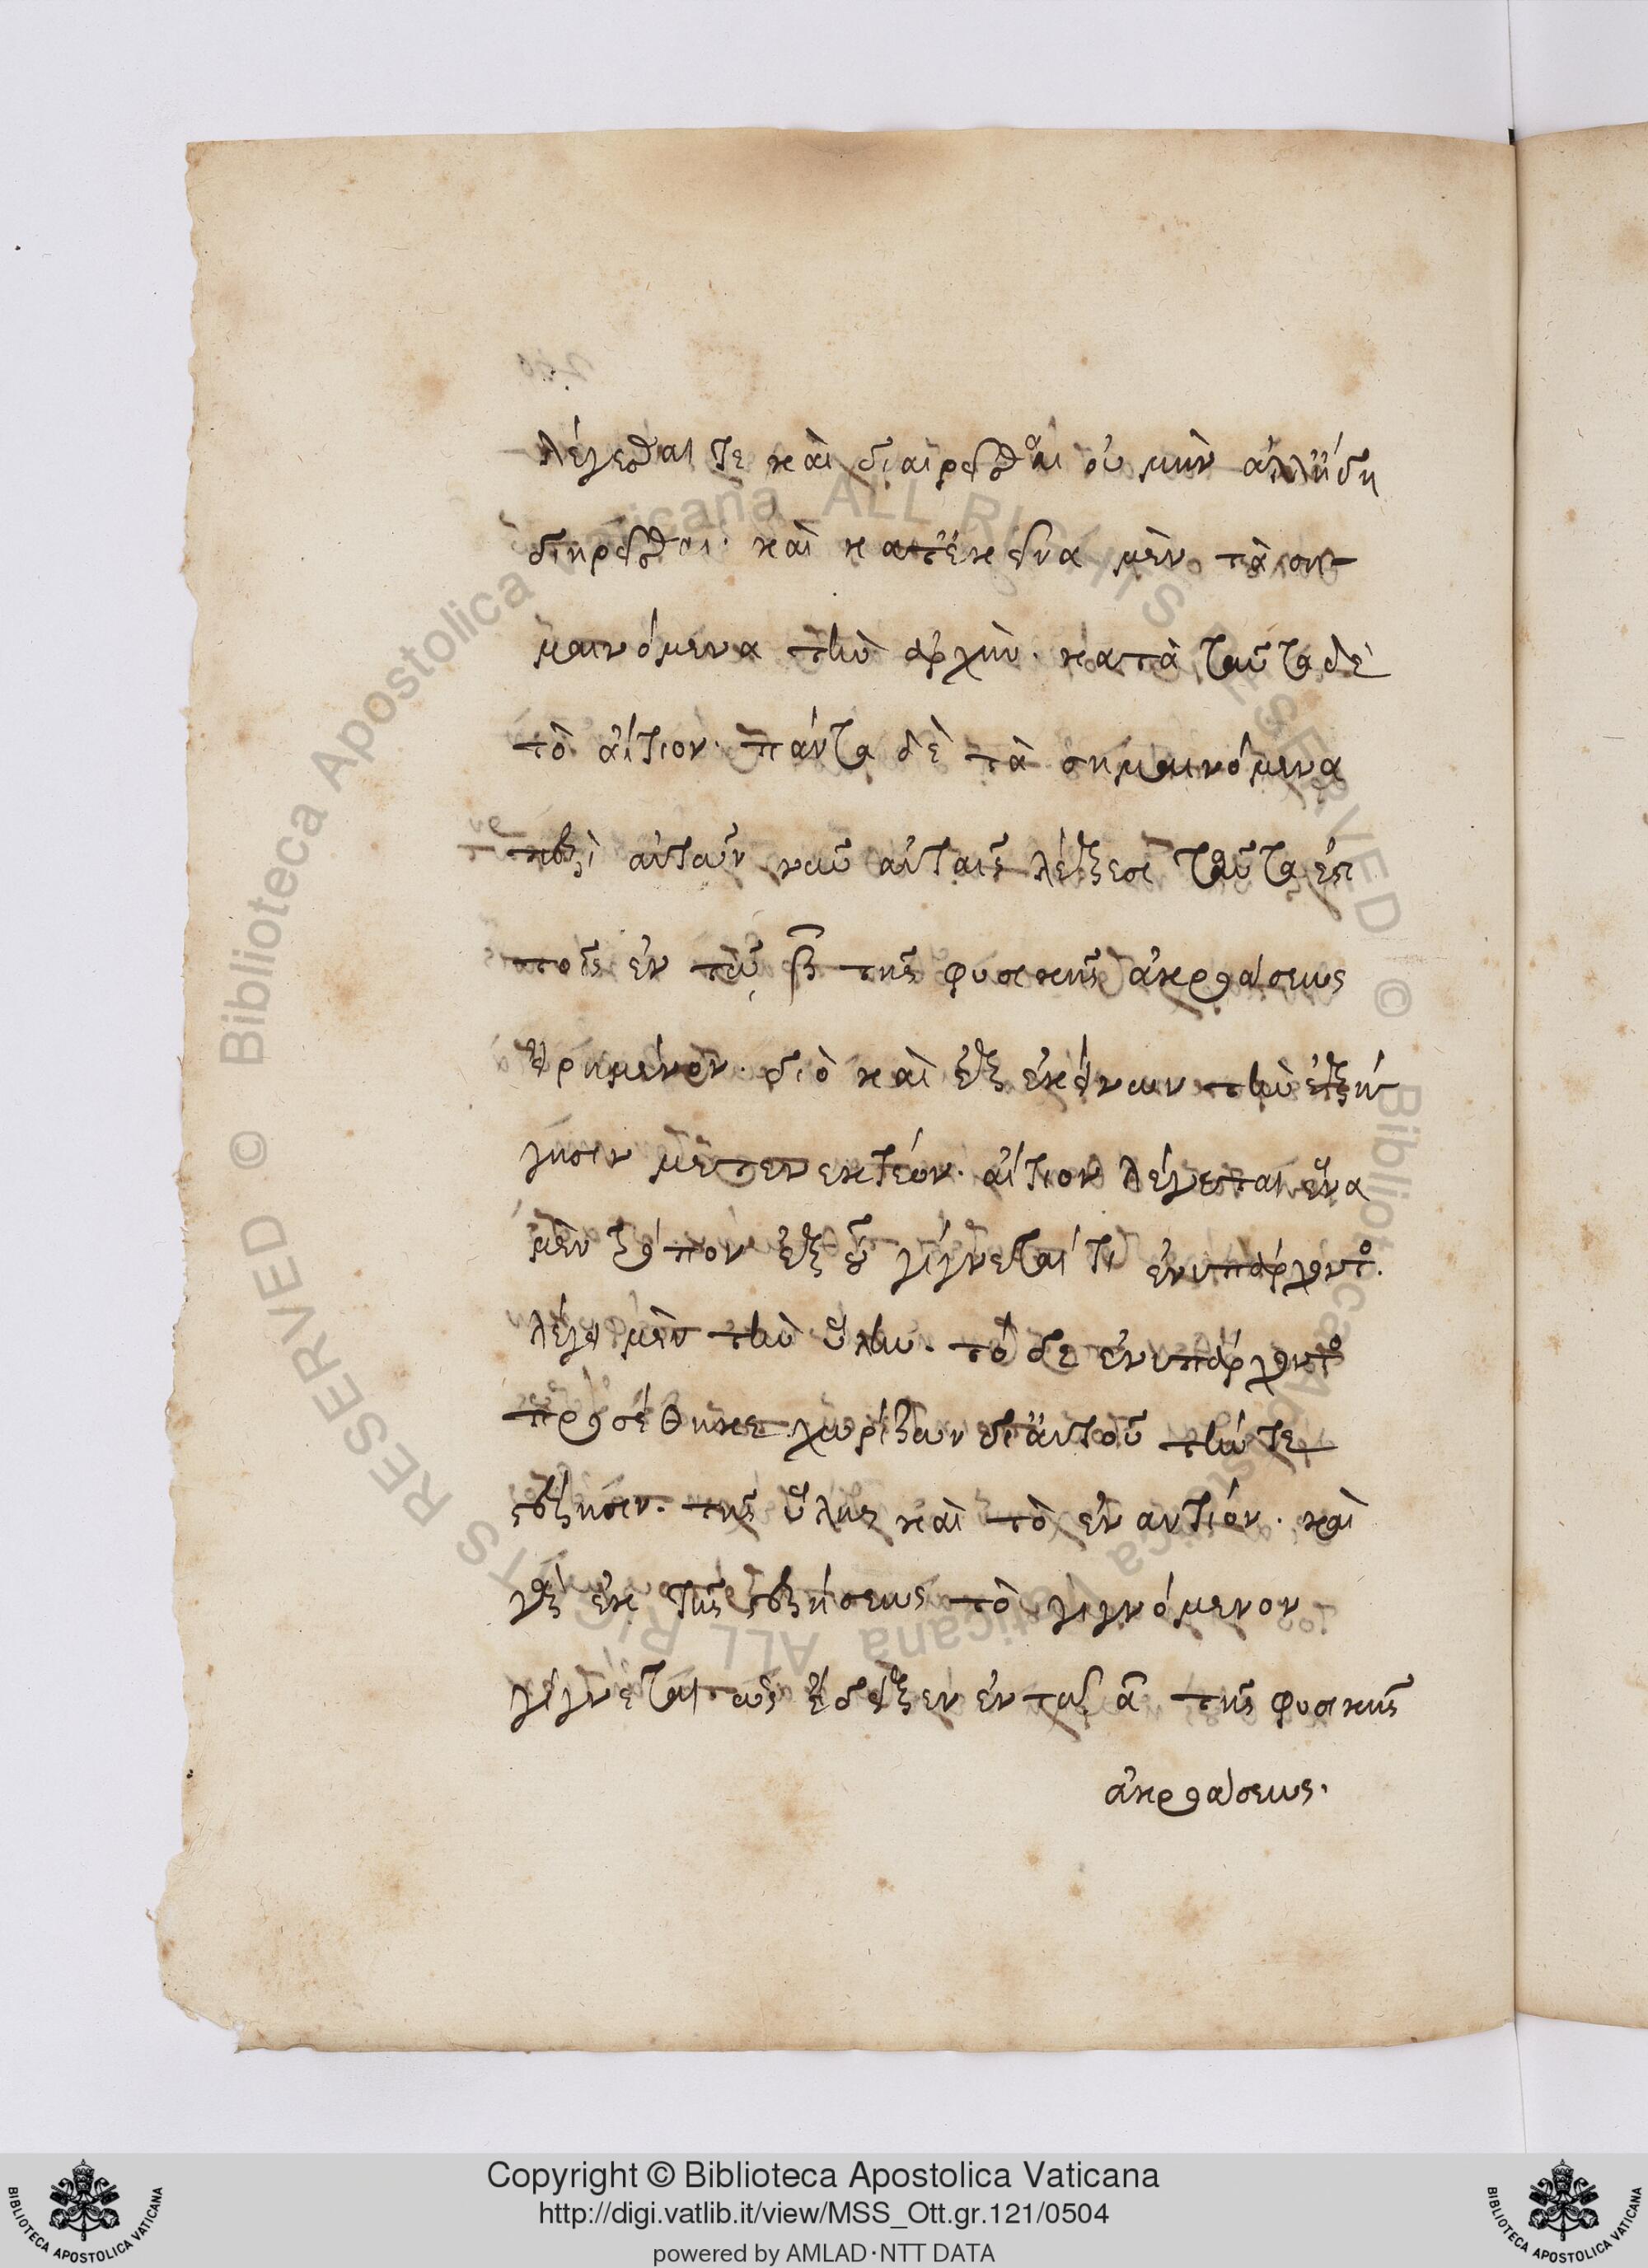 λέγεσθαι τε καὶ διαιρεῖσθαι οὐ μὴν ἀλλ' ἤδη
διηρεῖσθαι· καὶ κατ' ἐκεῖνα μὲν τὰ ση-
μαινόμενα τὴν ἀρχὴν· κατὰ ταῦτα δὲ
τὸ αἴτιον· πάντα δὲ τὰ σημαινόμενα
αὐταῖς λέξεσι ταῦτα ἐστι
τοῖς ἐν τῷ β τῆς φυσικῆς ἀκροάσεως
εἰρημένοις· διὸ καὶ ἐξ ἐκείνων τὴν ἐξή
γησιν μετενεκτέον· αἴτιον λέγεται ἕνα
μὲν τρόπον ἐξ οὗ γίγνεταί τι ἐνυπάρχοντος.
λέγει μὲν τὴν ὕλην· τὸ δὲ ἐνυπάρχοντος
προσέθηκε χωρίζων δι' αὐτοῦ τήν τε
στέρησιν· τῆς ὕλης καὶ τὸ ἐναντίον· καὶ
γὰρ ἐκ τῆς στερήσεως τὸ γιγνόμενον
γίγνεται ὡς ἔδειξεν ἐν τῷ α τῆς φυσικῆς
ἀκροάσεως·
Biblioteca Apostolica Vaticana ALL RIGHTS RESERVED ©
Biblioteca Apostolica Vaticana ALL RIGHTS RESERVED ©
Copyright © Biblioteca Apostolica Vaticana
http://digi.vatlib.it/view/MSS_Ott.gr.121/0504
powered by AMLAD·NTT DATA
BIBLIOTECA APOSTOLICA VATICANA
BIBLIOTECA APOSTOLICA VATICANA